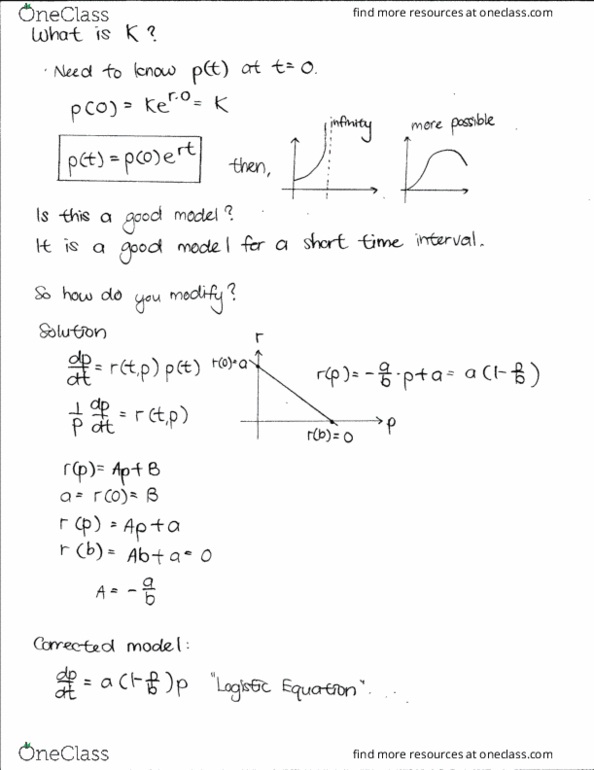 OneClass find more resources at oneclass.com
What is K?
· Need to know p(t) at t=0.
p(0) = Ke^{r·0} = K
infinity
more possible
p(t) = p(0)e^{rt}
then,
Is this a good model?
It is a good model for a short time interval.
So how do you modify?
Solution
r
dp/dt = r(t,p) p(t)
r(0)=a
r(p) = -a/b · p+a = a(1-p/b)
1/p dp/dt = r(t,p)
p
r(b)=0
r(p) = Ap+B
a = r(0) = B
r(p) = Ap+a
r(b) = Ab+a = 0
A = -a/b
Corrected model:
dp/dt = a(1-p/b)p "Logistic Equation"...
OneClass find more resources at oneclass.com